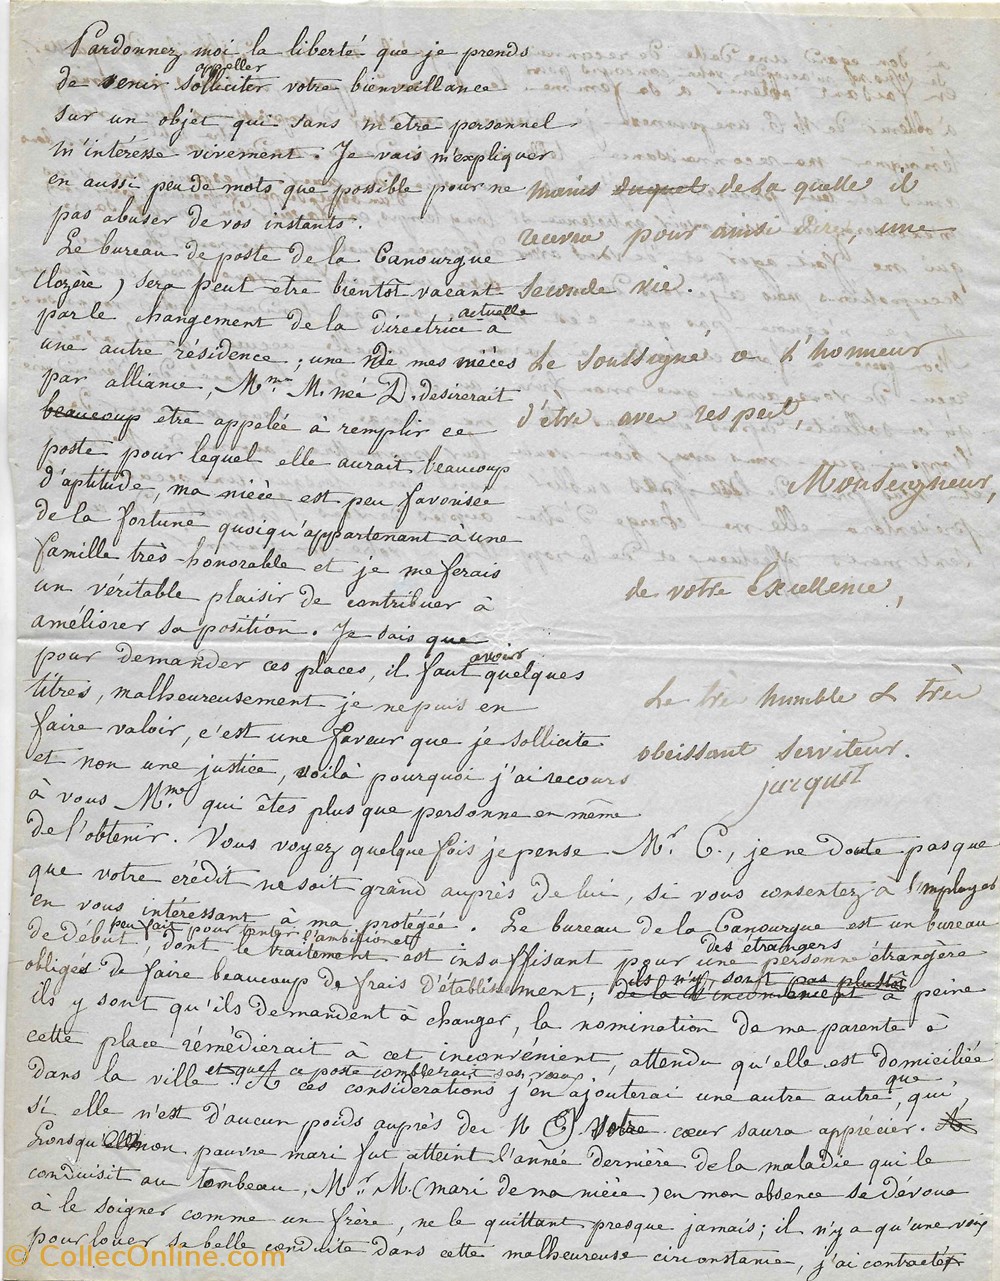 Pardonnez moi la liberté que je prends
de venir solliciter appeller votre bienveillance
sur un objet qui sans m'etre personnel
m'intéresse vivement. Je vais m'expliquer
en aussi peu de mots que possible pour ne
pas abuser de vos instants.
Le bureau de poste de la Canourgue
(Lozère) sera peut etre bientôt vacant
par le changement de la directrice actuelle à
une autre résidence ; une de mes nièces
par alliance, Mme M. née D. desirerait
beaucoup être appelée à remplir ce
poste pour lequel elle aurait beaucoup
d'aptitude, ma nièce est peu favorisée
de la fortune quoiqu'appartenant à une
famille très-honorable et je me ferais
un véritable plaisir de contribuer à
améliorer sa position. Je sais que
pour demander ces places, il faut avoir quelques
titres, malheureusement je ne puis en
faire valoir, c'est une faveur que je sollicite
et non une justice, voilà pourquoi j'ai recours
à vous Mme qui êtes plus que personne en même
de l'obtenir. Vous voyez quelque fois je pense Mr C., je ne doute pas que
que votre crédit ne soit grand auprès de lui, si vous consentez à l'employer
en vous intéressant a ma protégée. Le bureau de la Canourgue est un bureau
de début, peu fait pour tenter l'ambition et dont le traitement est insuffisant pour une personne étrangère des étrangers
obligés de faire beaucoup de frais d'établissement; ils n'y sont pas plustôt de là l'inconvénient à peine
ils y sont qu'ils demandent à changer, la nomination de ma parente à
cette place rémédierait à cet inconvénient, attendu qu'elle est domiciliée
dans la ville et que ce poste comblerait ses vœux. A ces considérations j'en ajouterai une autre autre, que qui,
si elle n'est d'aucun poids auprès de M C, votre cœur saura apprécier.
Lorsque mon pauvre mari fut atteint l'année dernière de la maladie qui le
conduisit au tombeau, Mr. M. (mari de ma nièce) en mon absence se dévoua
à le soigner comme un frère, ne le quittant presque jamais; il n'y a qu'une voix
pour louer sa belle conduite dans cette malheureuse circonstance, j'ai contracté
mains duquel de la quelle il
recevra, pour ainsi dire, une
seconde vie.
Le soussigné a l'honneur
d'être avec respect,
Monseigneur,
de votre Excellence,
Le très humble & très
obeissant serviteur.
Jacquet
CollecOnline.com